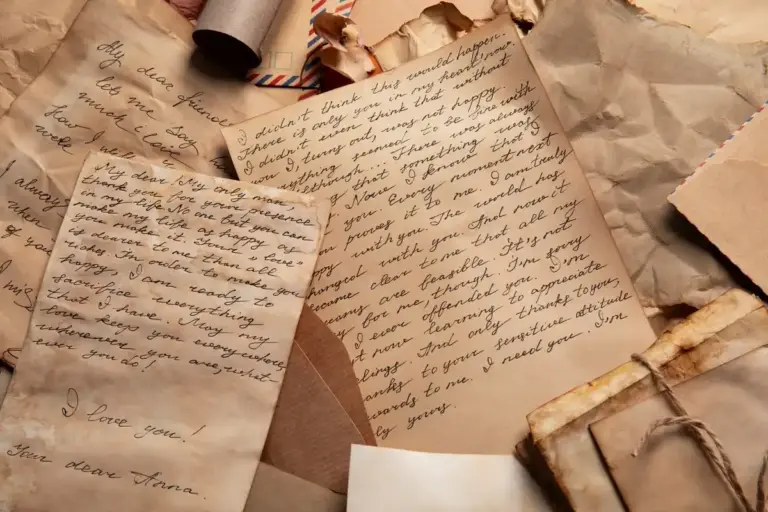 My dear friend
let me say
much i love
How I
well
I always
when
of you
I
My dear, My only man,
thank you for your presence
in my life. No one but you can
make my life as happy as
you make it. Your love
is dearer to me than all
riches. In order to make you
happy, I am ready to
sacrifice everything
that I have. May my
love keep you everywhere,
wherever you are, what-
ever you do!
I love you!
Your dear Anna.
I didn't think this would happen.
There is only you in my heart now.
I didn't even think that without
you I, turns out, was not happy.
everything seemed to be fine with
although... There was always
that something was
Now I know that I
you. Every moment next
you proves it to me. I am truly
ppy with you. The world has
hanged with you. And now it
came clear to me that all my
eams are feasible. It's not
y for me, though. I'm sorry
I ever offended you. I'm
t now learning to appreciate
lings. And only thanks to you,
anks to your sensitive attitude
wards to me. I need you. I'm
ly yours.